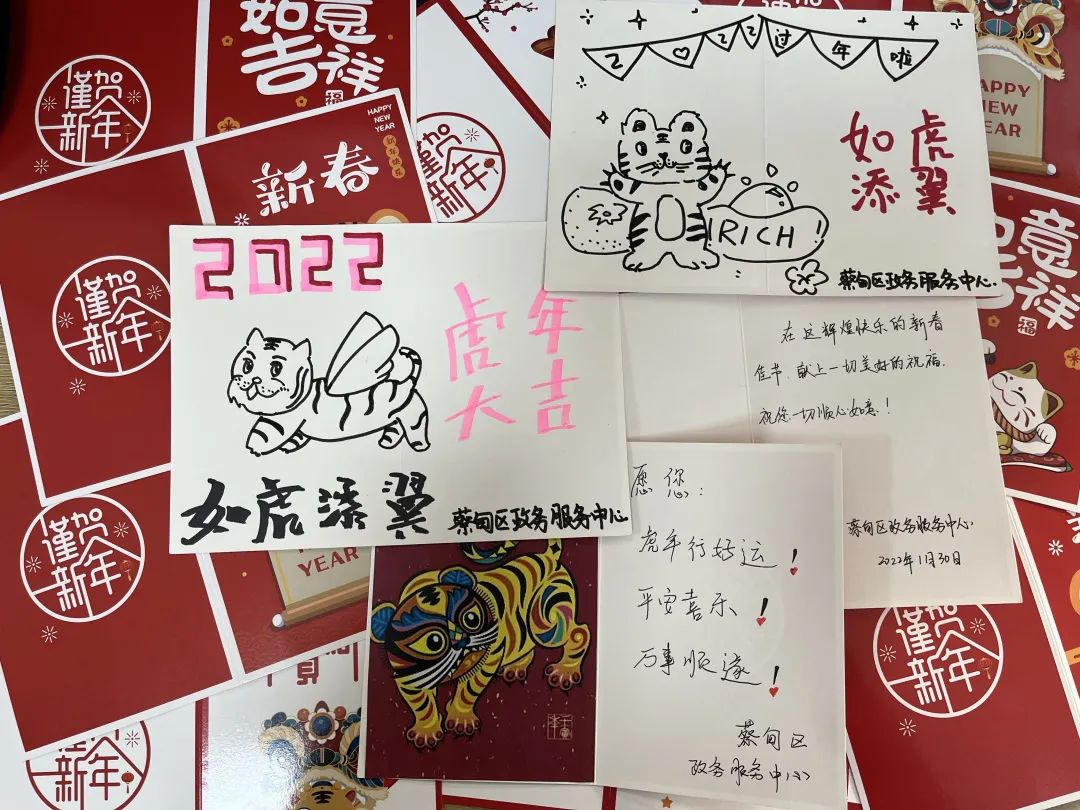 谨贺
新年
如意
吉祥
福
HAPPY
NEW
YEAR
新年快乐
新春
谨贺
新年
谨贺
新年
谨贺
新年
2022过年啦
如虎
添翼
RICH!
蔡甸区政务服务中心
HAPPY
NEW
YEAR
意
祥
福
2022
虎年
大吉
如虎添翼
蔡甸区政务服务中心
在这辉煌快乐的新春
佳节,献上一切美好的祝福.
祝您一切顺心如意!
蔡甸区政务服务中心
2022年1月30日
愿您:
虎年行好运!
平安喜乐!
万事顺遂!
蔡甸区
政务服务中心
YEAR
谨贺
新年
谨贺
新年